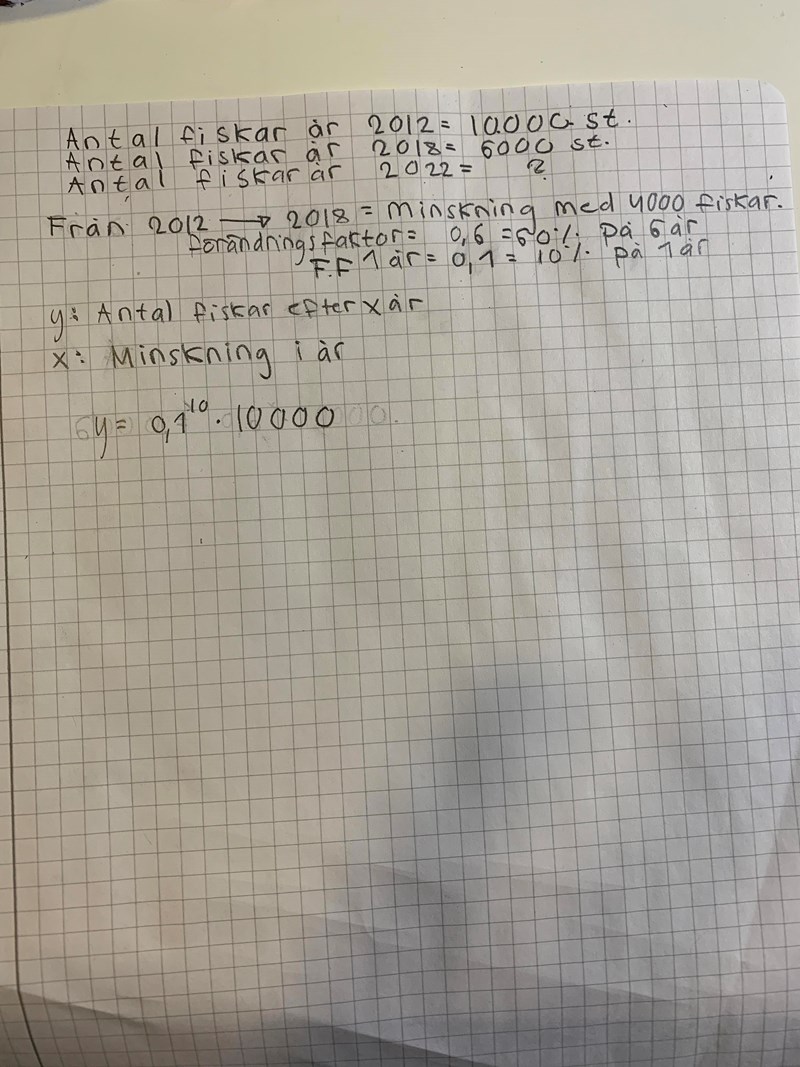 Antal fiskar år 2012 = 10000 st.
Antal fiskar år 2018 = 6000 st.
Antal fiskar år 2022 = ?
Från 2012 → 2018 = Minskning med 4000 fiskar.
Förändringsfaktor = 0,6 = 60% på 6 år
F.F 1 år = 0,1 = 10% på 1 år
y: Antal fiskar efter x år
x: Minskning i år
y = 0,1¹⁰ · 10000